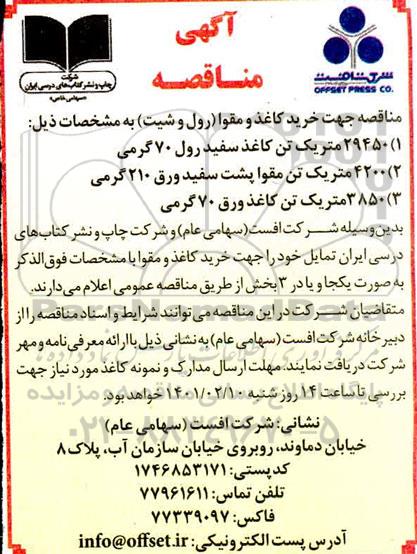 آگهی
مناقصه
شرکت افست
OFFSET PRESS CO.
شرکت
چاپ و نشر کتاب‌های درسی ایران
(سهامی خاص)
مناقصه جهت خرید کاغذ و مقوا (رول و شیت) به مشخصات ذیل:
۱) ۲۹۴۵۰ متریک تن کاغذ سفید رول ۷۰ گرمی
۲) ۴۲۰۰ متریک تن مقوا پشت سفید ورق ۲۱۰ گرمی
۳) ۳۸۵۰ متریک تن کاغذ ورق ۷۰ گرمی
بدین‌وسیله شرکت افست (سهامی عام) و شرکت چاپ و نشر کتاب‌های
درسی ایران تمایل خود را جهت خرید کاغذ و مقوا با مشخصات فوق‌الذکر
به صورت یکجا و یا در ۳ بخش از طریق مناقصه عمومی اعلام می‌دارند.
متقاضیان شرکت در این مناقصه می‌توانند شرایط و اسناد مناقصه را از
دبیرخانه شرکت افست (سهامی عام) به نشانی ذیل با ارائه معرفی‌نامه و مهر
شرکت دریافت نمایند. مهلت ارسال مدارک و نمونه کاغذ مورد نیاز جهت
بررسی تا ساعت ۱۴ روز شنبه ۱۴۰۱/۰۲/۱۰ خواهد بود.
نشانی: شرکت افست (سهامی عام)
خیابان دماوند، روبروی خیابان سازمان آب، پلاک ۸
کدپستی: ۱۷۴۶۸۵۳۱۷۱
تلفن تماس: ۷۷۹۶۱۶۱۱
فاکس: ۷۷۳۳۹۰۹۷
آدرس پست الکترونیکی: info@offset.ir